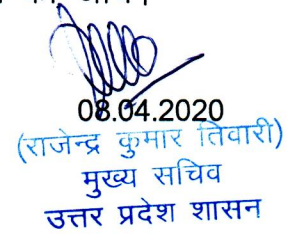 08.04.2020
(राजेन्द्र कुमार तिवारी)
मुख्य सचिव
उत्तर प्रदेश शासन